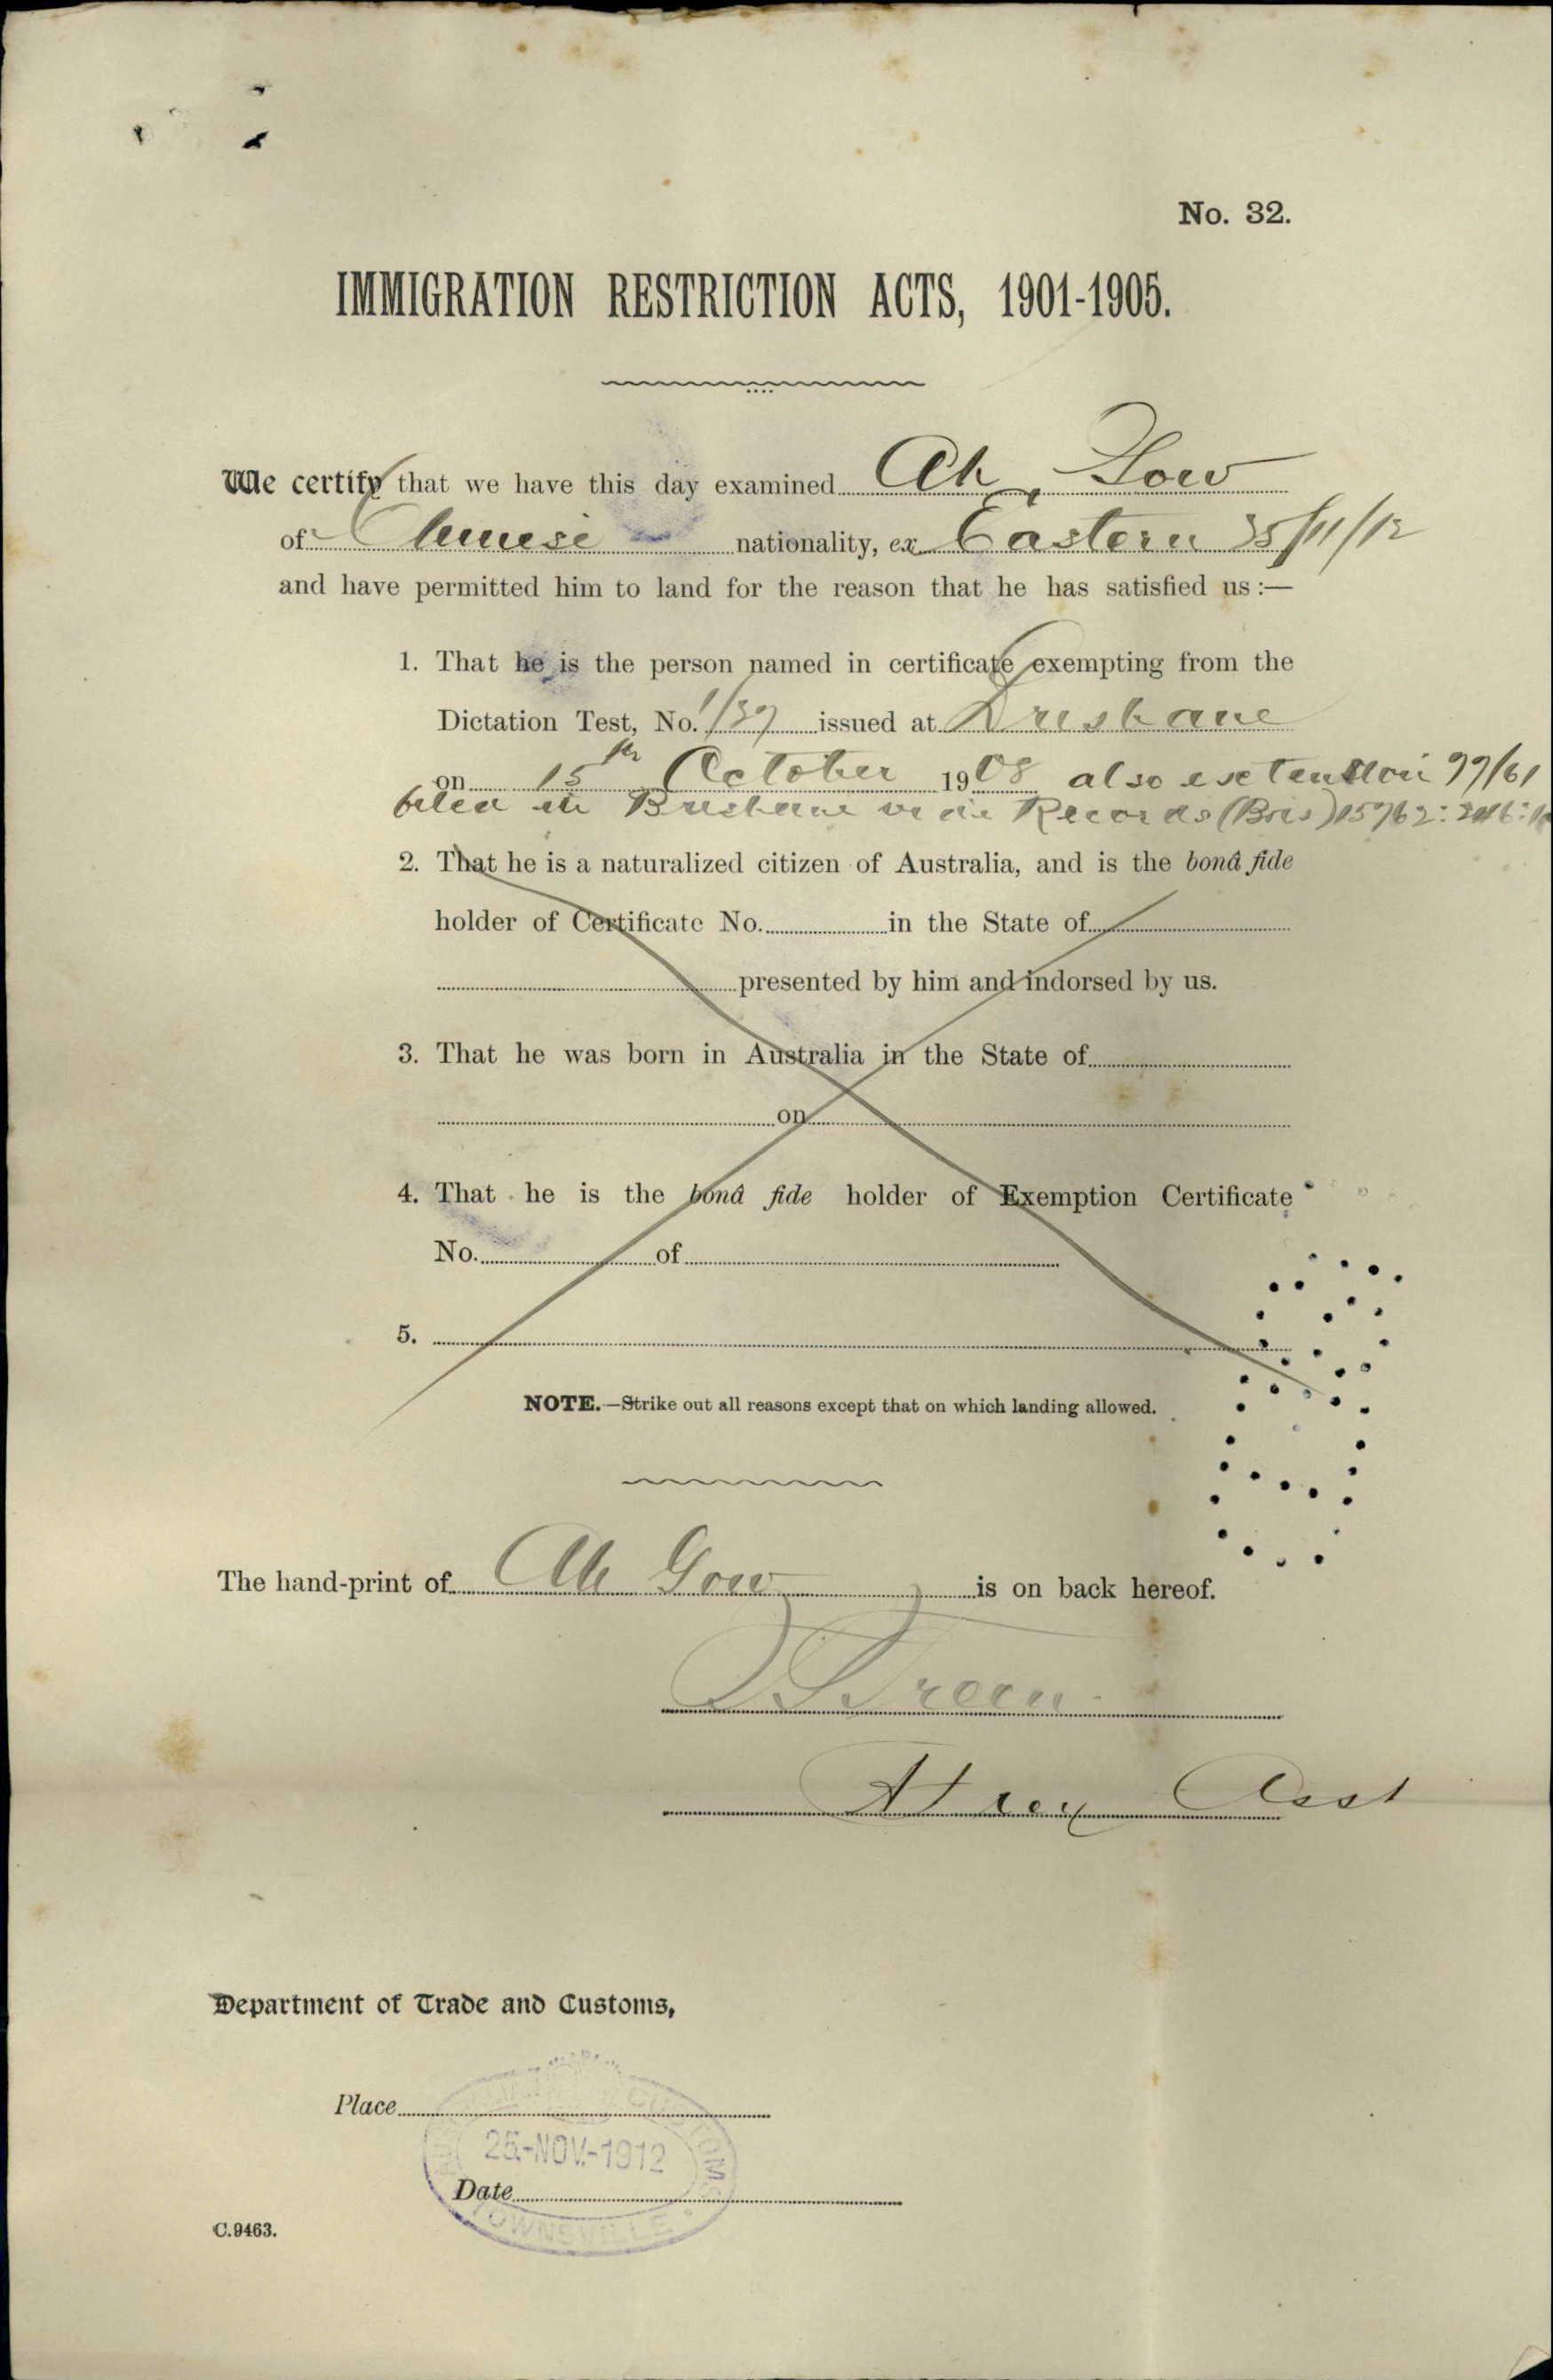 No. 32.
IMMIGRATION RESTRICTION ACTS, 1901-1905.
We certify that we have this day examined Ah Gow
of Chinese nationality, ex Eastern 25/11/12
and have permitted him to land for the reason that he has satisfied us :—
1. That he is the person named in certificate exempting from the
Dictation Test, No. 1/37 issued at Brisbane
on 15th October 1908 also extention 99/61
filed in Brisbane vide Records (Bris) 15762:
2. That he is a naturalized citizen of Australia, and is the bonâ fide
holder of Certificate No. in the State of
presented by him and indorsed by us.
3. That he was born in Australia in the State of
on
4. That he is the bonâ fide holder of Exemption Certificate
No. of
5.
NOTE.—Strike out all reasons except that on which landing allowed.
The hand-print of Ah Gow is on back hereof.
Asst
Department of Trade and Customs,
Place
CUSTOMS
25-NOV-1912
Date
TOWNSVILLE
C.9463.